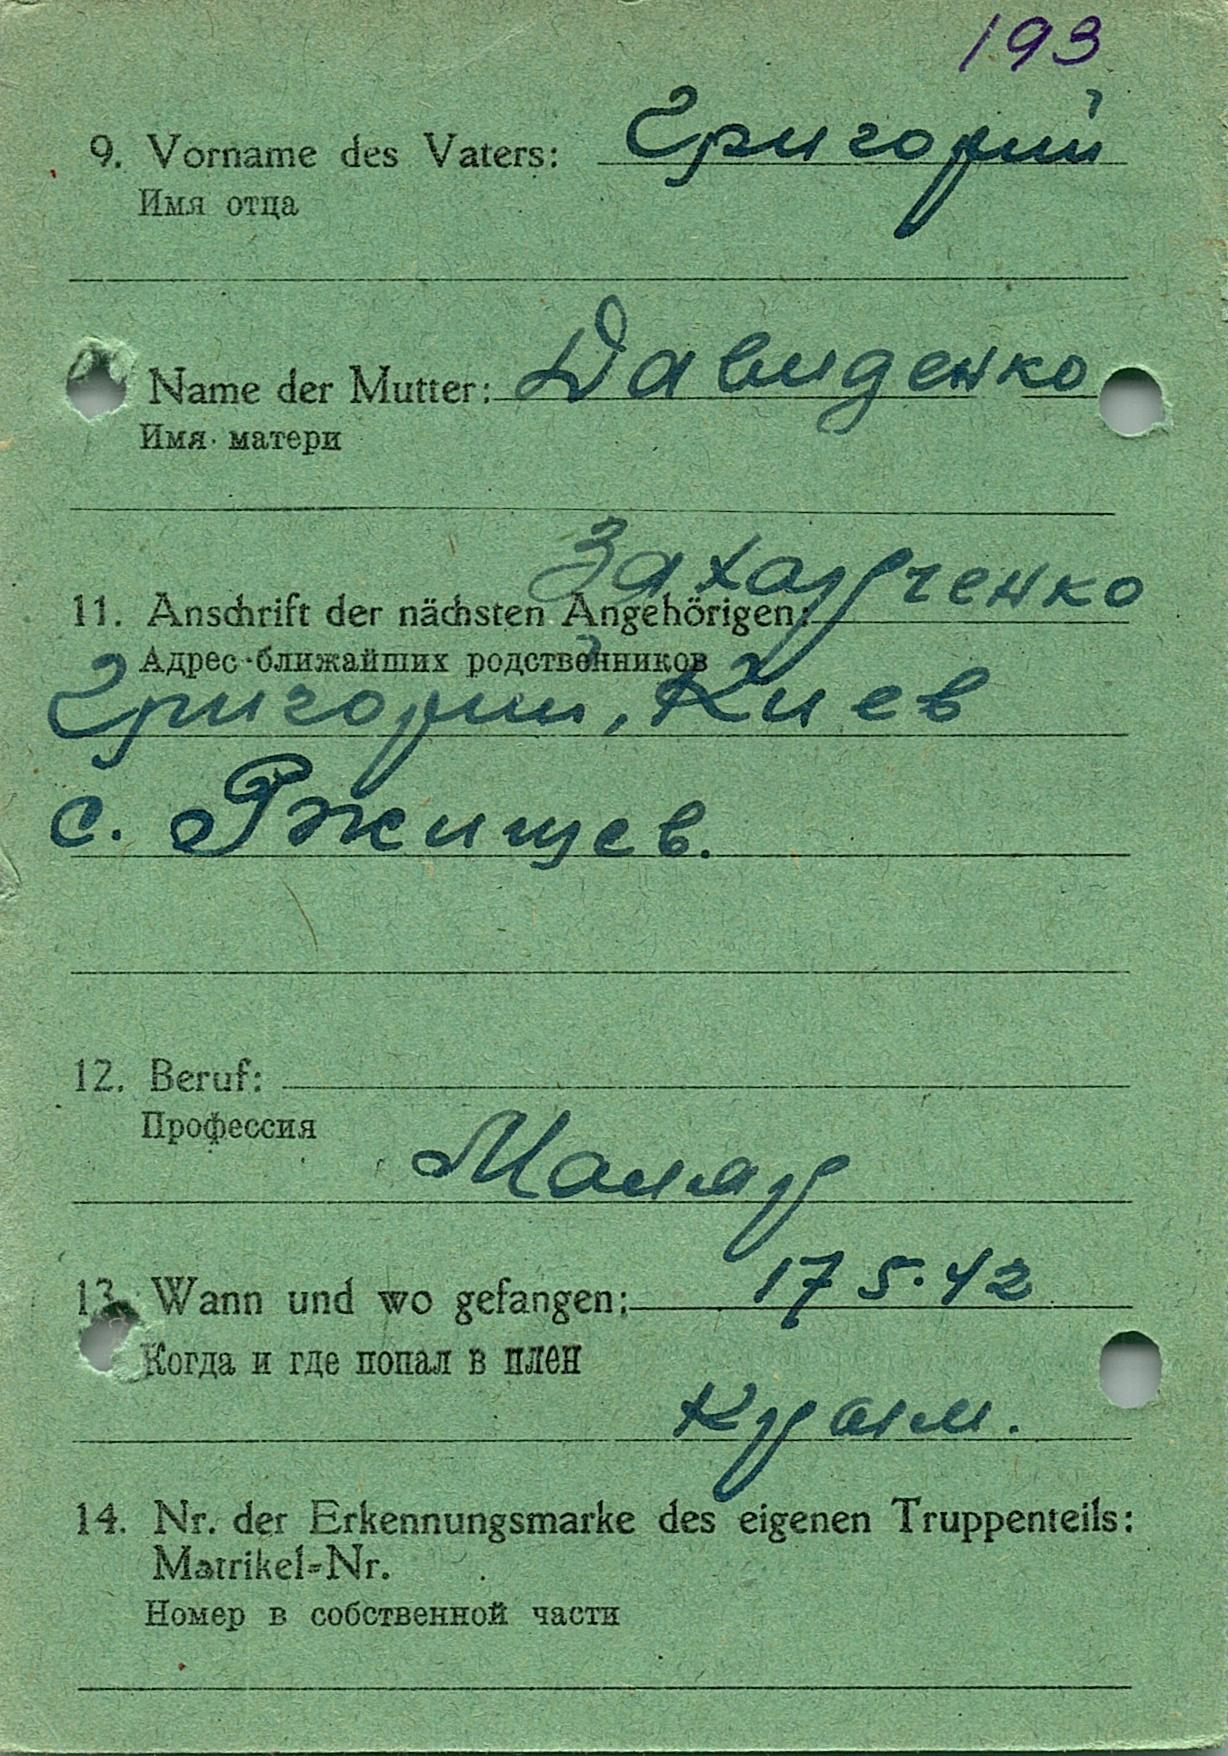 193
9. Vorname des Vaters: Григорий
Имя отца
Name der Mutter: Давиденко
Имя матери
Захарченко
11. Anschrift der nächsten Angehörigen:
Адрес ближайших родственников
Григорий, Киев
с. Ржищев.
12. Beruf:
Профессия
Маляр
13. Wann und wo gefangen: 17 5.42
Когда и где попал в плен
Крым.
14. Nr. der Erkennungsmarke des eigenen Truppenteils:
Matrikel=Nr.
Номер в собственной части